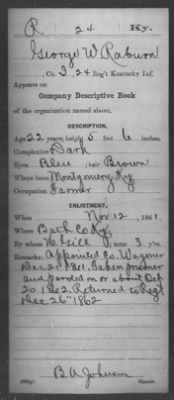 R 24 Ky.
George W Raburn
, Co. I, 24 Reg't Kentucky Inf.
Appears on
Company Descriptive Book
of the organization named above.
DESCRIPTION.
Age 22 years; height 5 feet 6 inches.
Complexion Dark
Eyes Blue ; hair Brown
Where born Montgomery Ky
Occupation Farmer
ENLISTMENT.
When Nov 12 , 1861.
Where Bath Co Ky
By whom H. Gill ; term 3 y'rs.
Remarks: Appointed Co. Wagoner
Dec 21 1861. Taken prisoner
and paroled on or about Oct
20 1862. Returned to Regt
Dec 26" 1862
B A Johnson